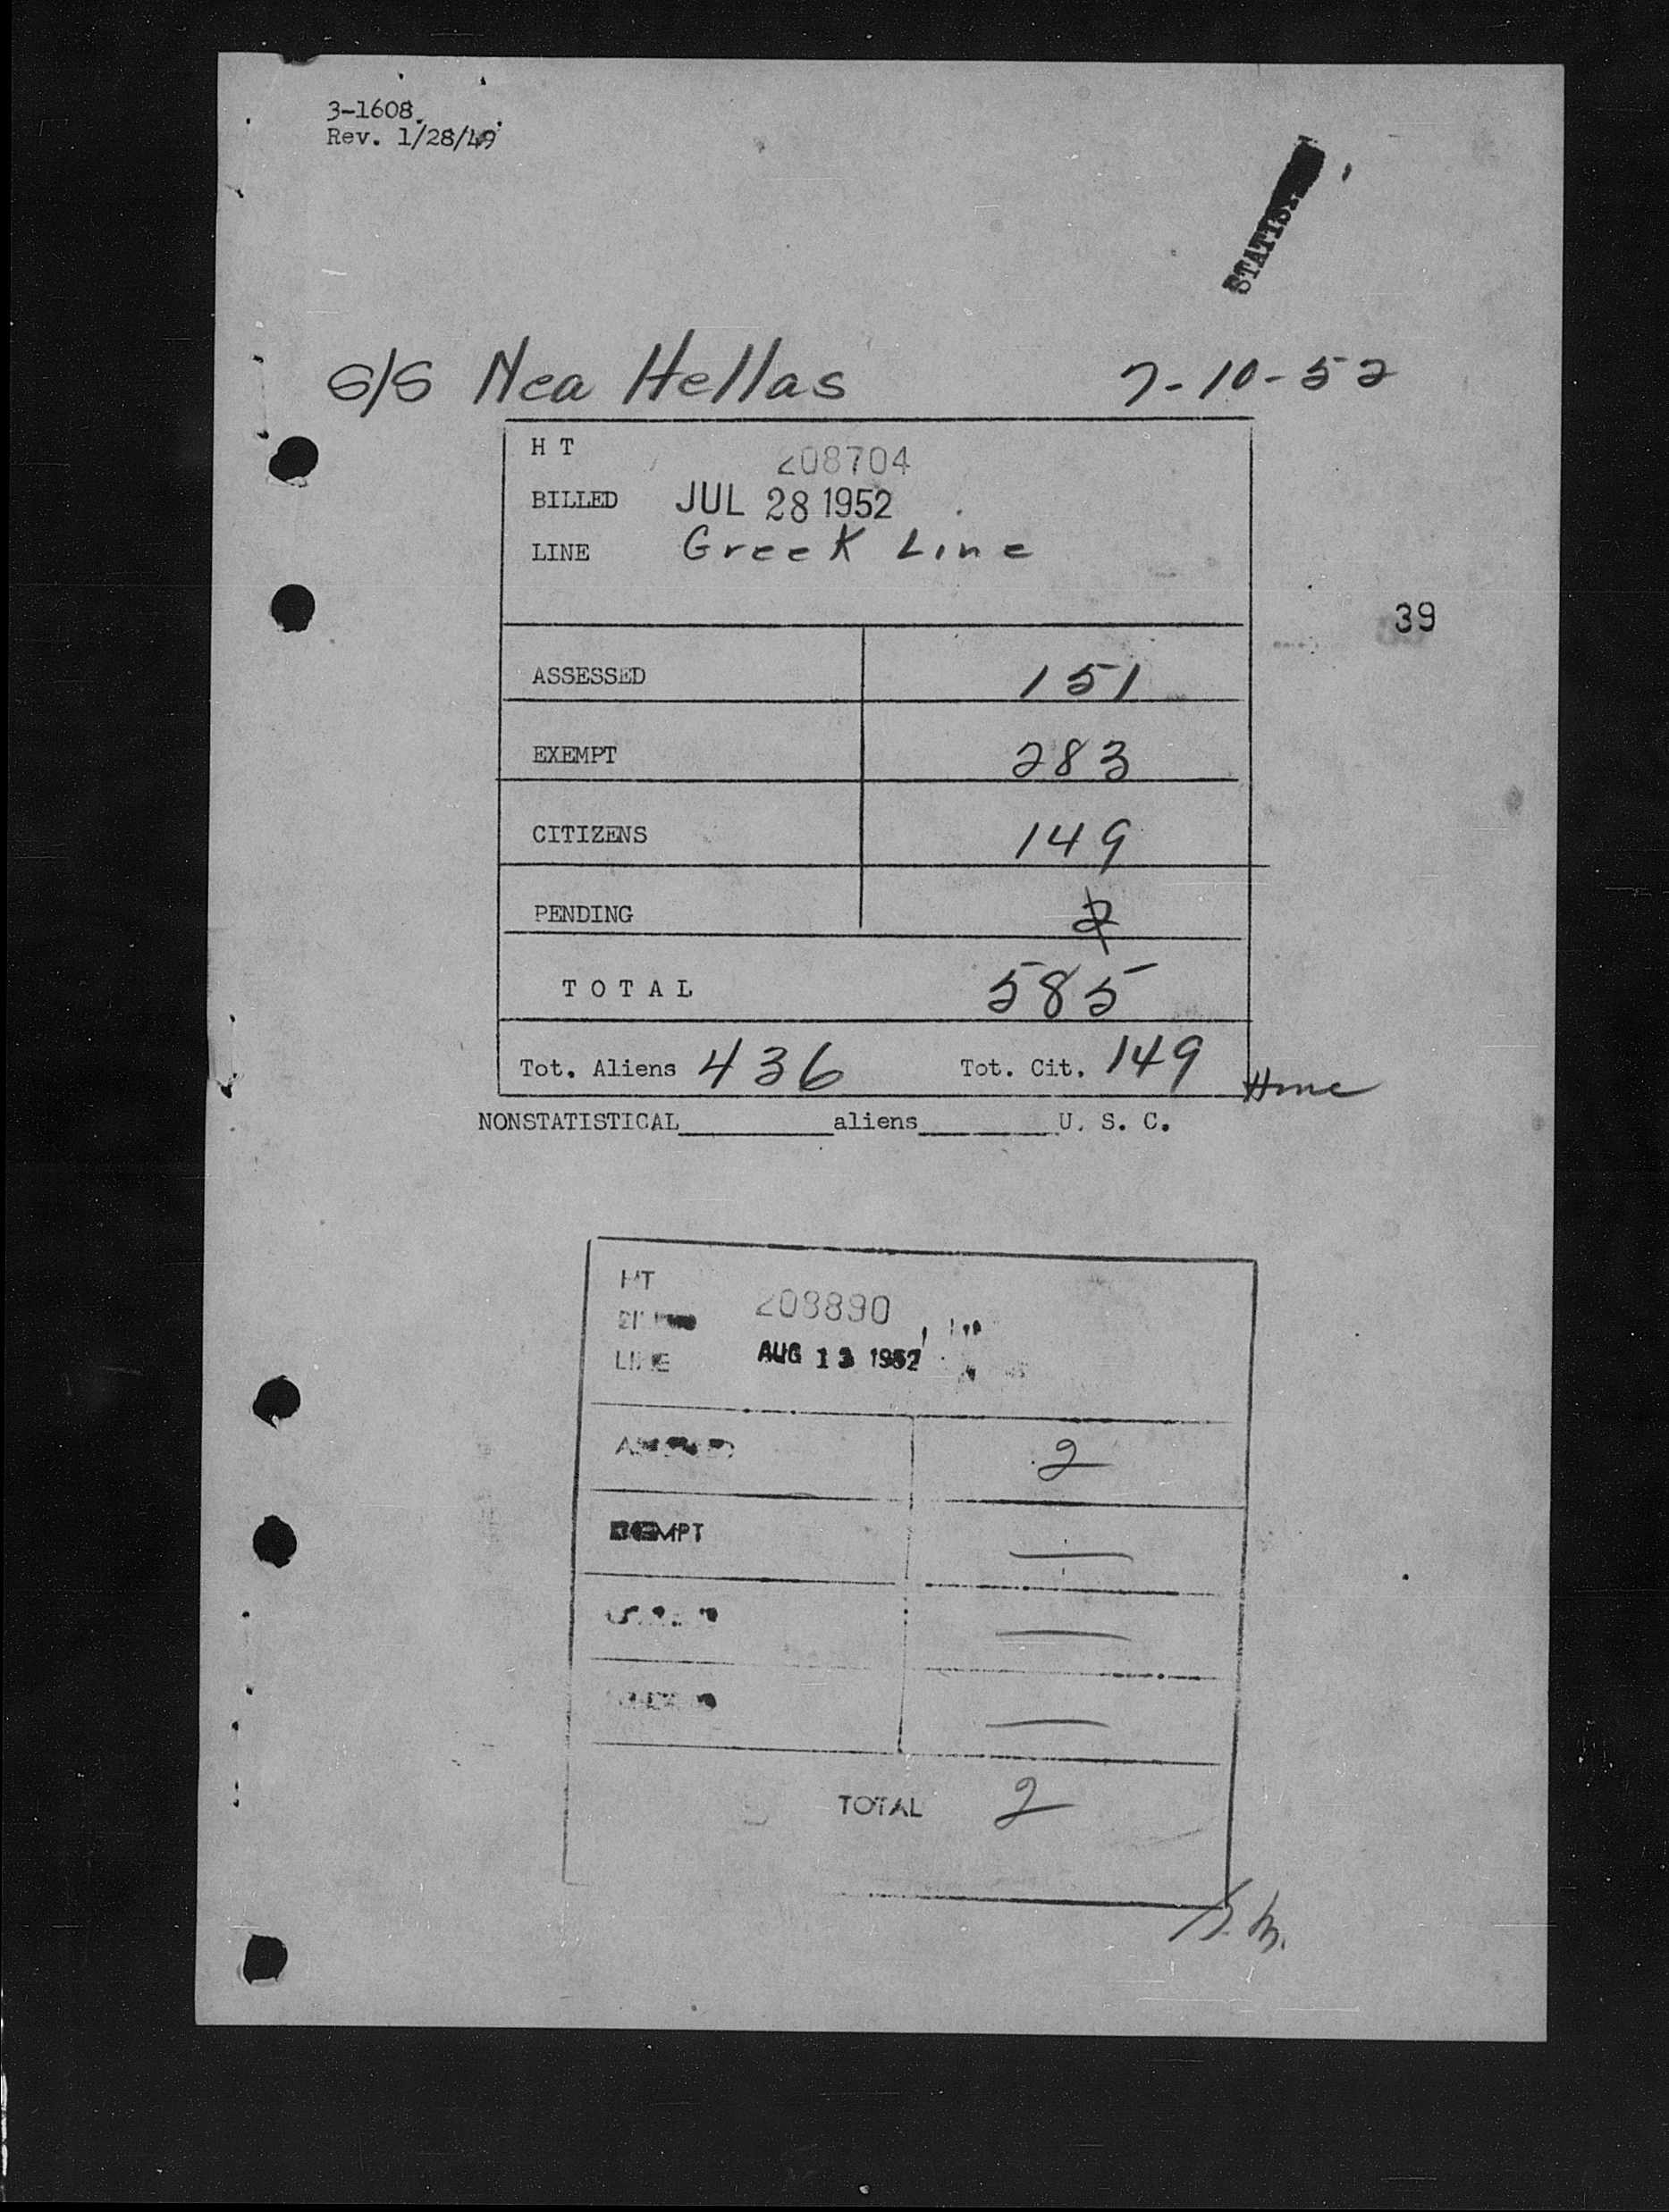 3-1608.
Rev. 1/28/49
S/S Nea Hellas 7-10-52
H T 208704
BILLED JUL 28 1952
LINE Greek Line
39
ASSESSED 151
EXEMPT 283
CITIZENS 149
PENDING 2
T O T A L 585
Tot. Aliens 436 Tot. Cit. 149
NONSTATISTICAL________aliens________U. S. C.
HT 208890
LINE AUG 13 1952
2
EXEMPT —
—
—
TOTAL 2